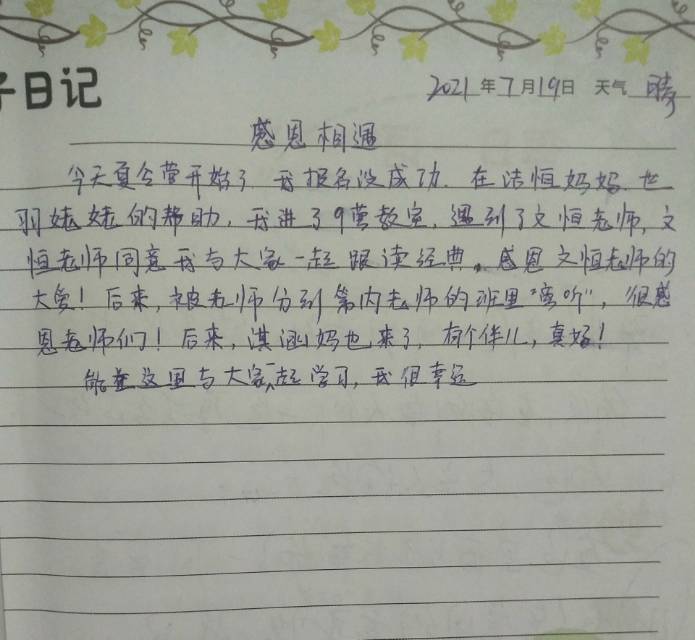 子日记
2021年7月19日 天气 晴
感恩相遇
今天夏令营开始了,我报名没成功,在洁恒妈妈、世
羽姥姥的帮助,我进了9营教室,遇到了文恒老师,文
恒老师同意我与大家一起跟读经典。感恩文恒老师的
大爱!后来,被老师分到第内老师的班里“旁听”,很感
恩老师们!后来,淇涵妈也来了,有个伴儿,真好!
能在这里与大家一起学习,我很幸运